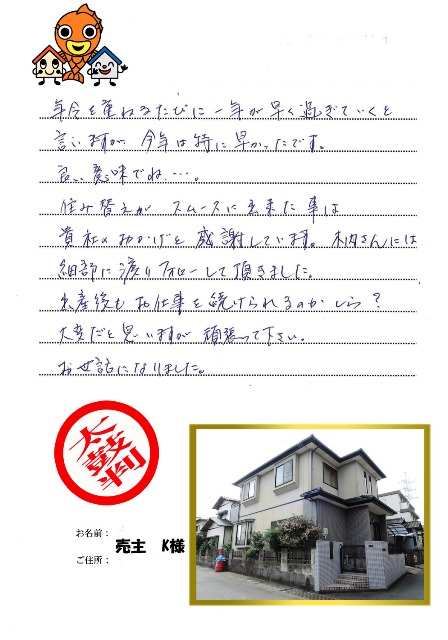 年令を重ねるたびに一年が早く過ぎていくと
言いますが 今年は特に早かったです。
良い意味でね……。
住み替えが スムースに出来た事は
貴社のおかげと感謝しています。木内さんには
細部に渡りフォローして頂きました。
出産後もお仕事を続けられるのかしら?
大変だと思いますが 頑張って下さい。
お世話になりました。
太鼓判
お名前:
売主 K様
ご住所: